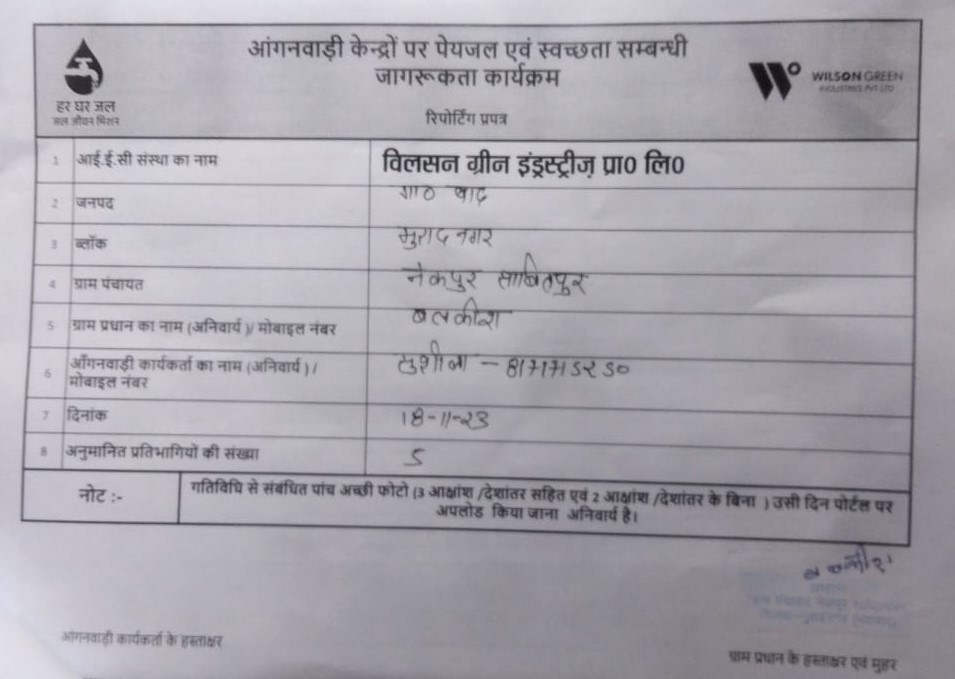 हर घर जल
जल जीवन मिशन
आंगनवाड़ी केन्द्रों पर पेयजल एवं स्वच्छता सम्बन्धी
जागरूकता कार्यक्रम
रिपोर्टिंग प्रपत्र
WILSON GREEN
INDUSTRIES PVT LTD
1 आई.ई.सी संस्था का नाम विलसन ग्रीन इंड्रस्ट्रीज़ प्रा0 लि0
2 जनपद गा0 बाद
3 ब्लॉक मुरादनगर
4 ग्राम पंचायत नेकपुर साबितपुर
5 ग्राम प्रधान का नाम (अनिवार्य)/ मोबाइल नंबर बलकीश
6 आँगनवाड़ी कार्यकर्ता का नाम (अनिवार्य) /
मोबाइल नंबर सुशीला -
7 दिनांक 18-11-23
8 अनुमानित प्रतिभागियों की संख्या 5
नोट :- गतिविधि से संबंधित पांच अच्छी फोटो (3 आक्षांश /देशांतर सहित एवं 2 आक्षांश /देशांतर के बिना ) उसी दिन पोर्टल पर
अपलोड किया जाना अनिवार्य है।
आंगनवाड़ी कार्यकर्ता के हस्ताक्षर
ग्राम प्रधान के हस्ताक्षर एवं मुहर